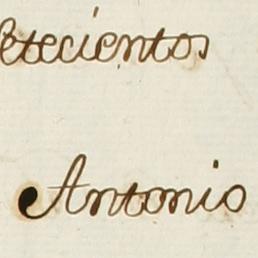 Setecientos
Antonio